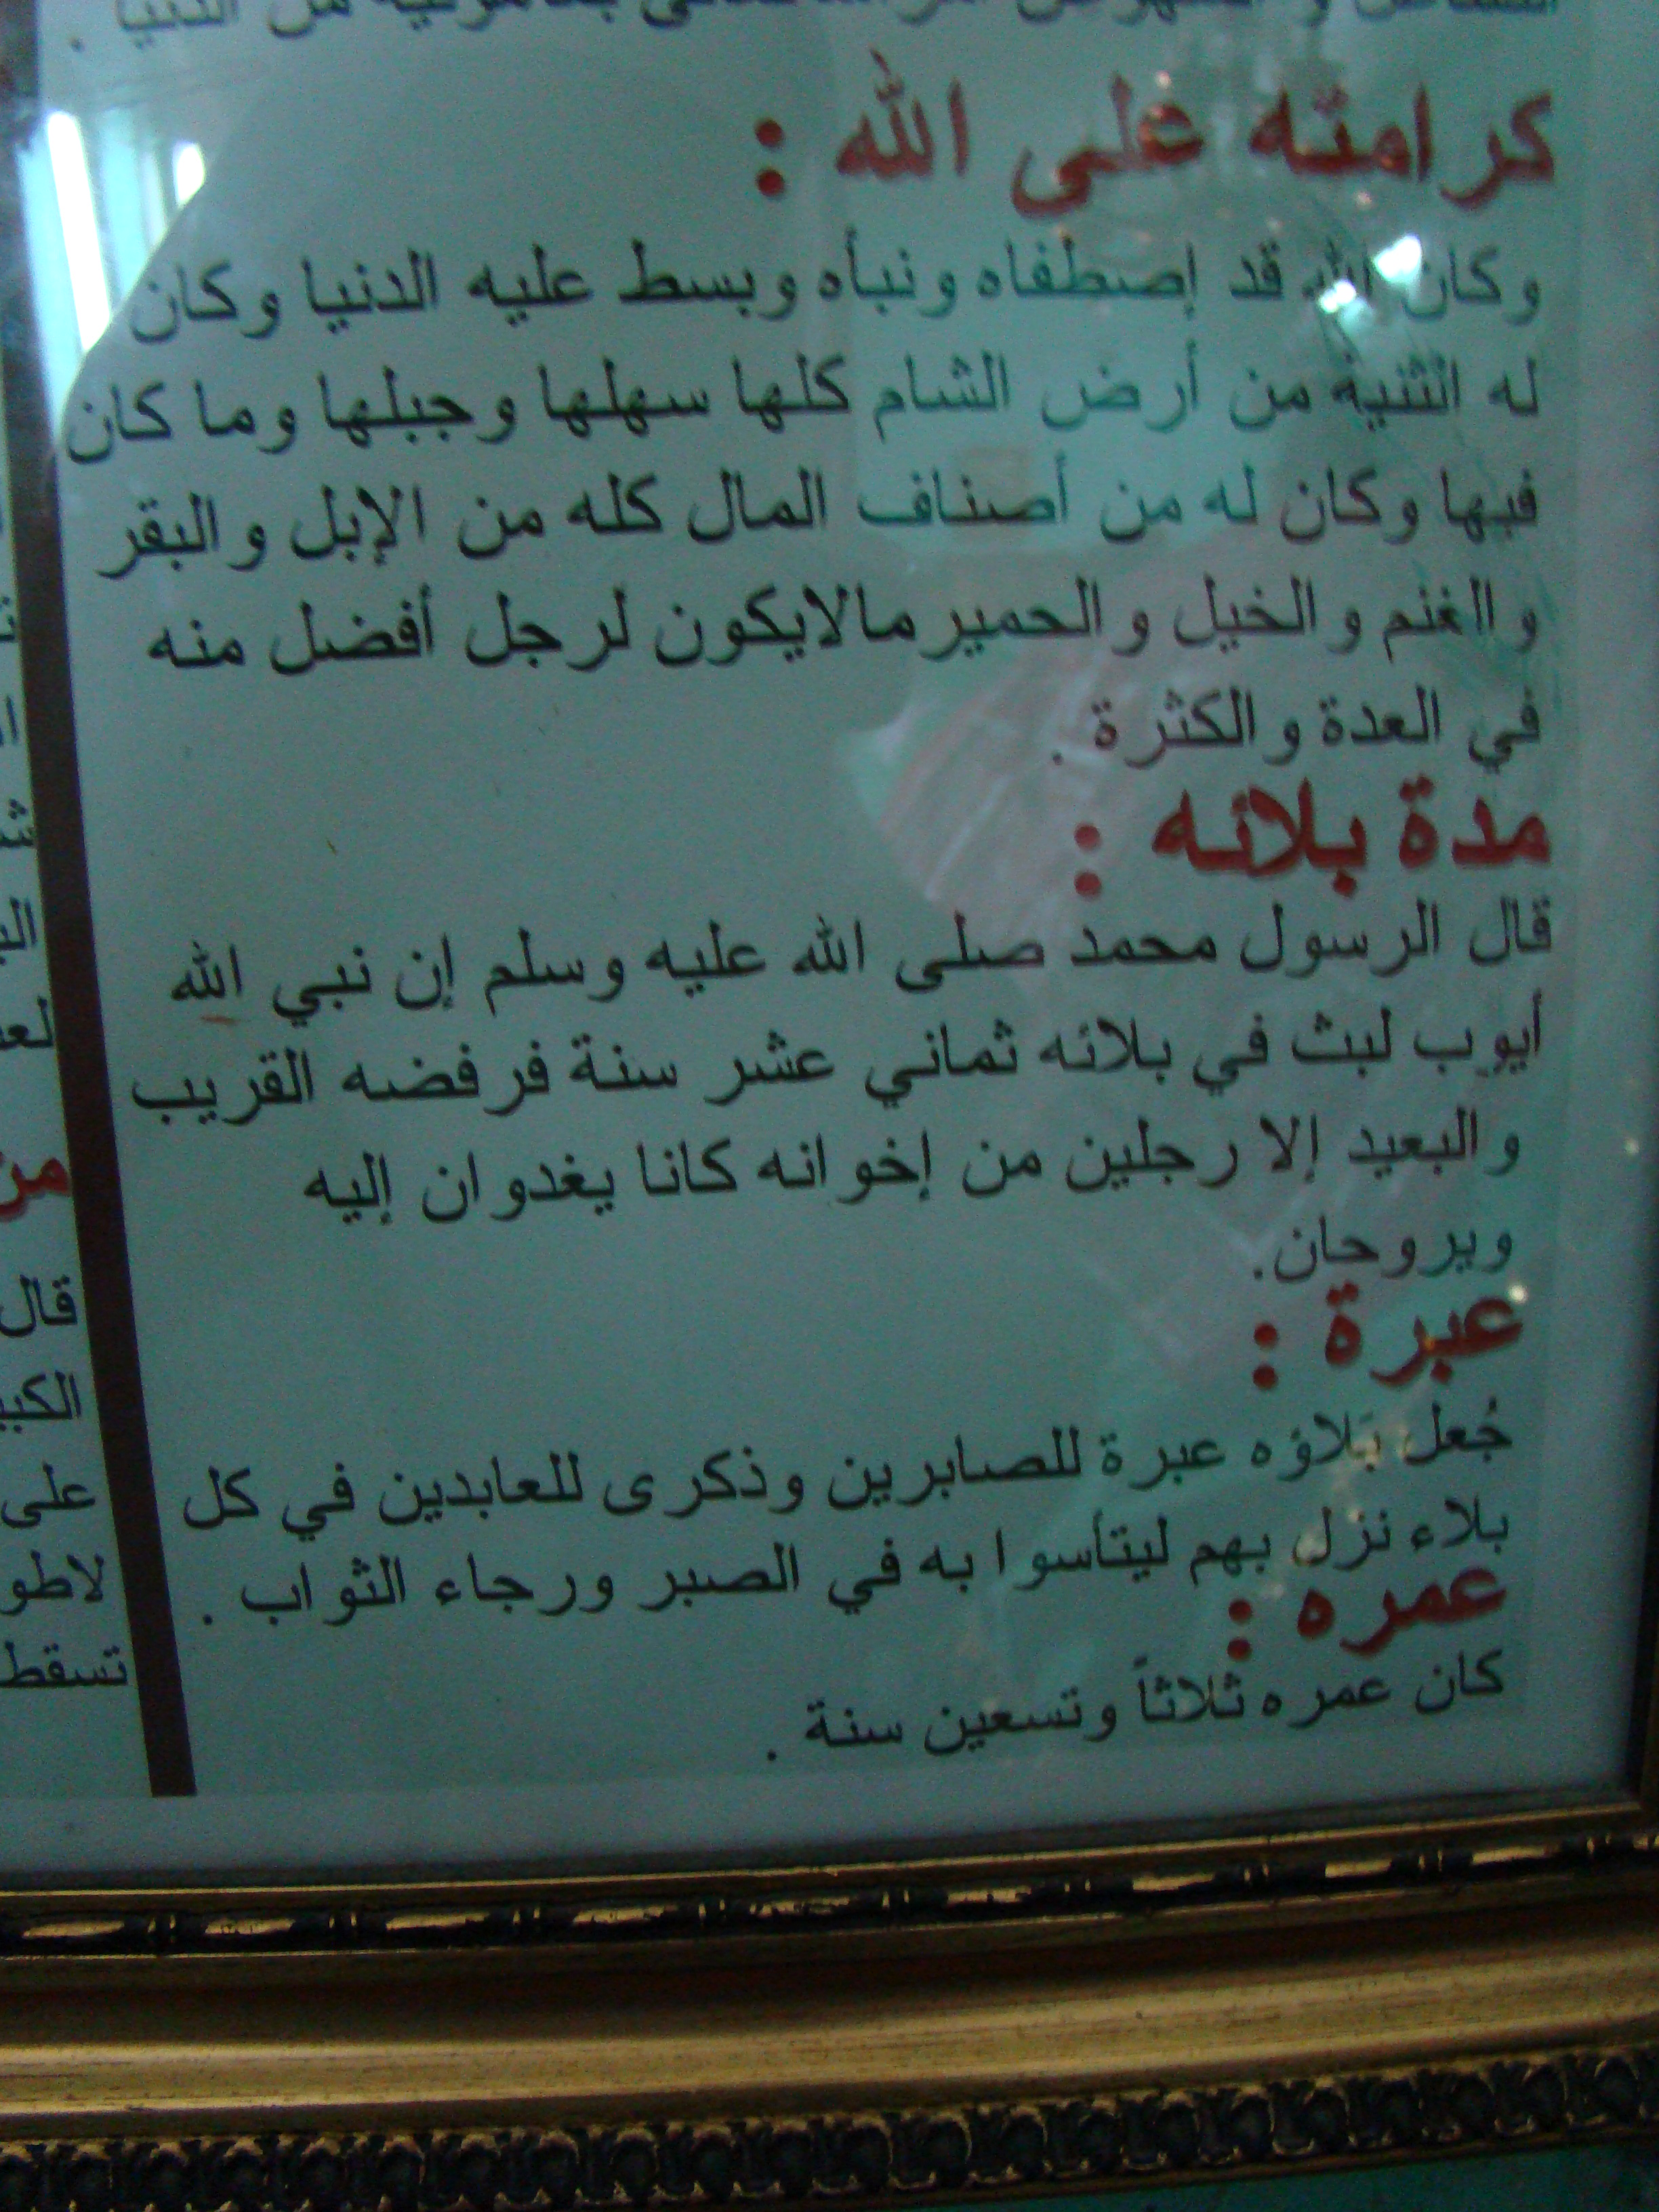 كرامته على الله :
وكان الله قد إصطفاه ونبأه وبسط عليه الدنيا وكان
له الثنية من أرض الشام كلها سهلها وجبلها وما كان
فيها وكان له من أصناف المال كله من الإبل والبقر
والغنم والخيل والحمير مالايكون لرجل أفضل منه
في العدة والكثرة .
مدة بلائه :
قال الرسول محمد صلى الله عليه وسلم إن نبي الله
أيوب لبث في بلائه ثماني عشر سنة فرفضه القريب
والبعيد إلا رجلين من إخوانه كانا يغدوان إليه
ويروحان.
عبرة :
جُعل بَلاؤه عبرة للصابرين وذكرى للعابدين في كل
بلاء نزل بهم ليتأسوا به في الصبر ورجاء الثواب .
عمره :
كان عمره ثلاثاً وتسعين سنة .
من
قال
على
تسقط